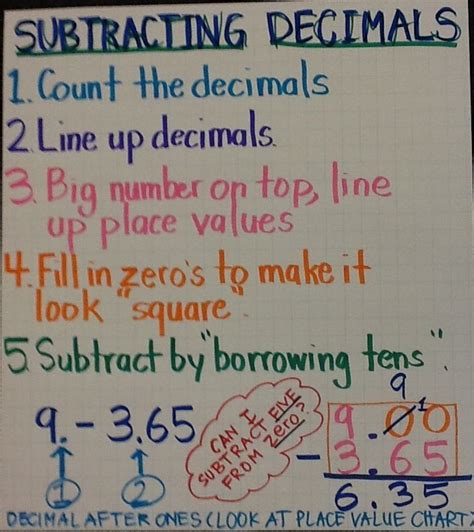 SUBTRACTING DECIMALS
1. Count the decimals
2. Line up decimals.
3. Big number on top, line
up place values
4. Fill in zero's to make it
look "square".
5. Subtract by "borrowing tens".
9. - 3.65
1 2
CAN I
SUBTRACT FIVE
FROM zero?
9
9.00
1
- 3.65
6.35
DECIMAL AFTER ONES (LOOK AT PLACE VALUE CHART)